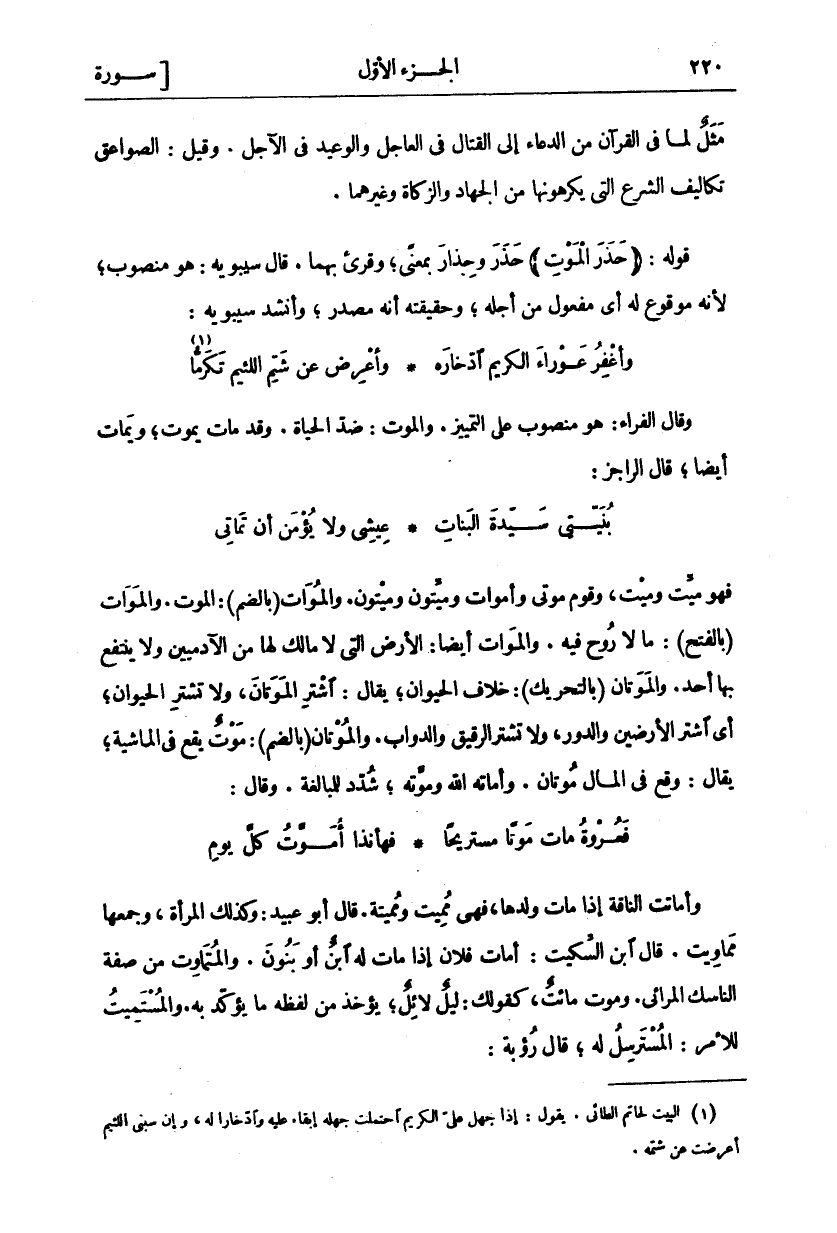 ٢٢٠ الجـــزء الأوّل [ ســـورة
مَثَلٌ لمـا فى القرآن من الدعاء إلى القتال فى العاجل والوعيد فى الآجل . وقيل : الصواعق
تكاليف الشرع التى يكرهونها من الجهاد والزكاة وغيرهما .
قوله : ﴿ حَذَرَ الْمَوْتِ ﴾ حَذَرَ وحِذارَ بمعنًى؛ وقرئ بهما . قال سيبويه : هو منصوب؛
لأنه موقوع له أى مفعول من أجله ؛ وحقيقته أنه مصدر ؛ وأنشد سيبويه :
وأغْفِرُ عَـوْراءَ الكريم ٱدّخارَه * وأُعْرِض عن شَتِمِ اللئيم تَكَرُّمَا (١)
وقال الفراء: هو منصوب على التمييز . والموت : ضدّ الحياة . وقد مات يموت؛ ويَمات
أيضا ؛ قال الراجز :
بُنَيّـــتى سَـــيّدةَ البَناتِ * عِيشِى ولا يُؤْمَن أن تَمَاتِى
فهو ميّت وميْت، وقوم موتى وأموات وميّتون وميْتون. والمُوَات (بالضم): الموت. والمَوَات
(بالفتح) : ما لا رُوح فيه . والمَوات أيضا: الأرض التى لا مالك لها من الآدميين ولا ينتفع
بها أحد. والمَوَتان (بالتحريك): خلاف الحيوان؛ يقال : ٱشْترِ المَوَتانَ، ولا تشترِ الحيوان؛
أى ٱشتر الأرضين والدور، ولا تشتر الرقيق والدواب. والمُوْتان(بالضم): مَوْتٌ يقع فى الماشية؛
يقال : وقع فى المـال مُوتان . وأماته الله وموّته ؛ شُدّد للبالغة . وقال :
فَعُـرْوةُ مات مَوْتًا مستريحًا * فهأنذا أُمَـــوَّتُ كلَّ يوم
وأماتت الناقة إذا مات ولدها، فهى مُمِيت ومُمِيتة. قال أبو عبيد: وكذلك المرأة ، وجمعها
مَماوِيت . قال ٱبن السِّكيت : أمات فلان إذا مات له ٱبنٌ أو بَنُونَ . والمُتَمَاوِت من صفة
الناسك المرائى. وموت مائتٌ، كقولك: ليلٌ لائلٌ؛ يؤخذ من لفظه ما يؤكّد به. والمُسْتَمِيتُ
للأمر : المُسْتَرسِلُ له ؛ قال رُؤبة :
(١) البيت لحاتم الطائى . يقول : إذا جهل علىّ الكريم ٱحتملت جهله إبقاء عليه وٱدّخارا له ، و إن سبنى اللئيم
أعرضت عن شتمه .